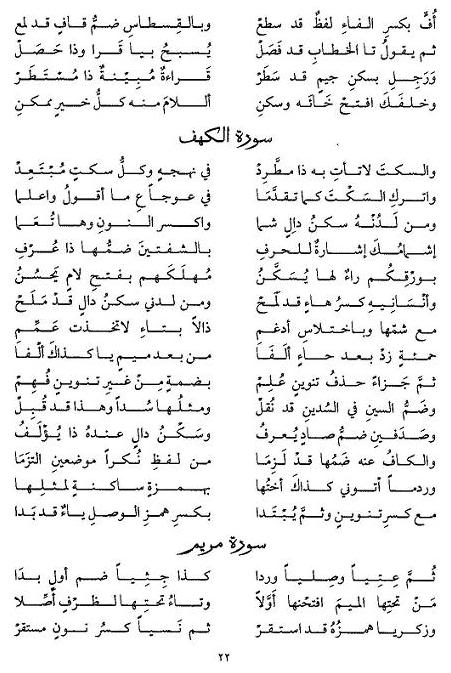 أُفِّ بكسرِ الفاءِ لفظٌ قد سطعْ وبالقِسطاسِ ضمُّ قافٍ قد لمع
ثم يقولُ تا الخطابِ قد فَصَلْ يُسبحُ بيا قرا وذا حَصَلْ
وَرَجِلِ بسكنِ جيمٍ قد سَطَرْ قراءةٌ مُبِيْنةٌ ذا مُسْتَطَرْ
وخلفَكَ افتحْ خَائَه وسكنِ اللامَ منه كلُّ خيرٍ يمكنِ
سورة الكهف
والسكتَ لاتأتِ به ذا مطَّردْ في نهجهِ وكلُّ سكتٍ مُبْتَعِدْ
واتركِ السَكْتَ كما تقدَّمَا في عوجاً عِ ما أقولُ واعلما
ومن لَدُنْهُ سكنُ دالٍ شما واكسرِ النونِ وها نُعَما
إشمامُكَ إشارةٌ للحرفِ بالشفتينِ ضمُّها ذا عُرْفِ
بورْقِكم راءٌ لها يُسَكَّنُ مُهلَكَهم بفتحِ لامٍ يَحْسُنُ
وأنْسَانِيهِ كسرُ هاءٍ قد لَمَحْ ومن لدني سكنُ دالٍ قدْ مَلَحْ
مع شمّها وباختلاسٍ أدغمِ ذالاً بتاءِ لاتخذتَ عَمِّمِ
حمئةٍ زدْ بعد حاءٍ ألفَا من بعدِ ميمٍ يا كذاكَ ألفَا
ثمَّ جَزاءً حذفُ تنوينٍ عُلِمْ بضمةٍ مِنْ غيرِ تنوينٍ فُهِمْ
وضمُّ السينِ في السُدينِ قد نُقلْ ومثلُها سُداً وهذا قد قُبِلْ
وصَدَفينِ ضمُّ صادٍ يُعرفُ وسَكْنُ دالٍ عندهُ ذا يُؤلَفُ
والكافُ عنه ضَمُّها قد لَزِمَا من لفظِ نُكراً موضعينِ التزمَا
وردماً أتوني كذاكَ أختُها بهمزةٍ ساكنةٍ لمثلِها
مع كسرِ تنوينٍ وثمَّ يُبْتَدا بكسرِ همزِ الوصلِ ياءٌ قد بَدا
سورة مريم
ثُمَّ عِتِياً وصِلِياً وردا كذا جِثِياً ضم أولٍ بدَا
مَنْ تحتِها الميمَ افتحنْها أوَّلاً وتاءُ تحتِها لظرفٍ أُصِّلا
وزكريا همزُهُ قد استقرْ ثم نَسياً كسرُ نونٍ مستقرْ
٢٢